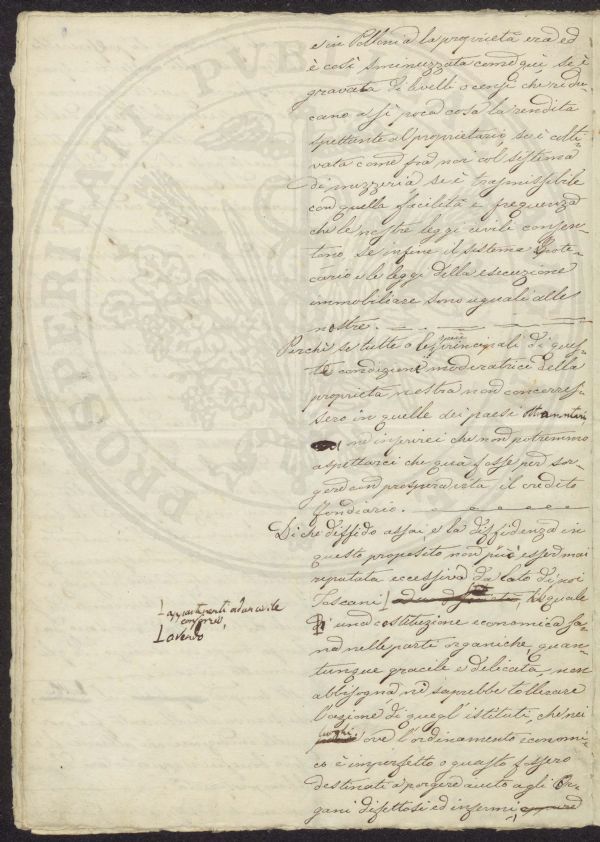 e in Pollonia la proprietà era ed
è così sminuzzata come quì, se è
gravata di livelli o censi che ridu-
cano a sì poca cosa la rendita
spettante al proprietario, se è colti-
vata come fra noi col sistema
di mezzeria se è trasmissibile
con quella facilità e frequenza
che le nostre leggi civili consen-
tano, se infine il sistema Ipote-
cario e le leggi della esecuzione
immobiliare sono uguali alle
nostre.
Perchè se tutte o le più principali di ques-
te condizioni moderatrici della
proprietà nostra non concorres-
sero in quelle dei paesi
ne inferirei che non potremmo
aspettarci che quà fosse per sor-
gere con prospera vita il credito
fondiario.
Di che diffido assai, e la diffidenza in
questo proposito non può esser mai
reputata eccessiva dal lato di noi
Toscani
appartenenti ad un civile
consorzio,
L'avendo
una costituzione economica sa-
na nelle parti organiche, quan-
tunque gracile e delicata, non
abbisogna, nè saprebbe tollerare
l'azione di quegl'istituti, che nei
luoghi ove l'ordinamento economi-
co è imperfetto o guasto fossero
destinati a porgere aiuto agli Or-
gani difettosi ed infermi
PROSPERITATI PUB